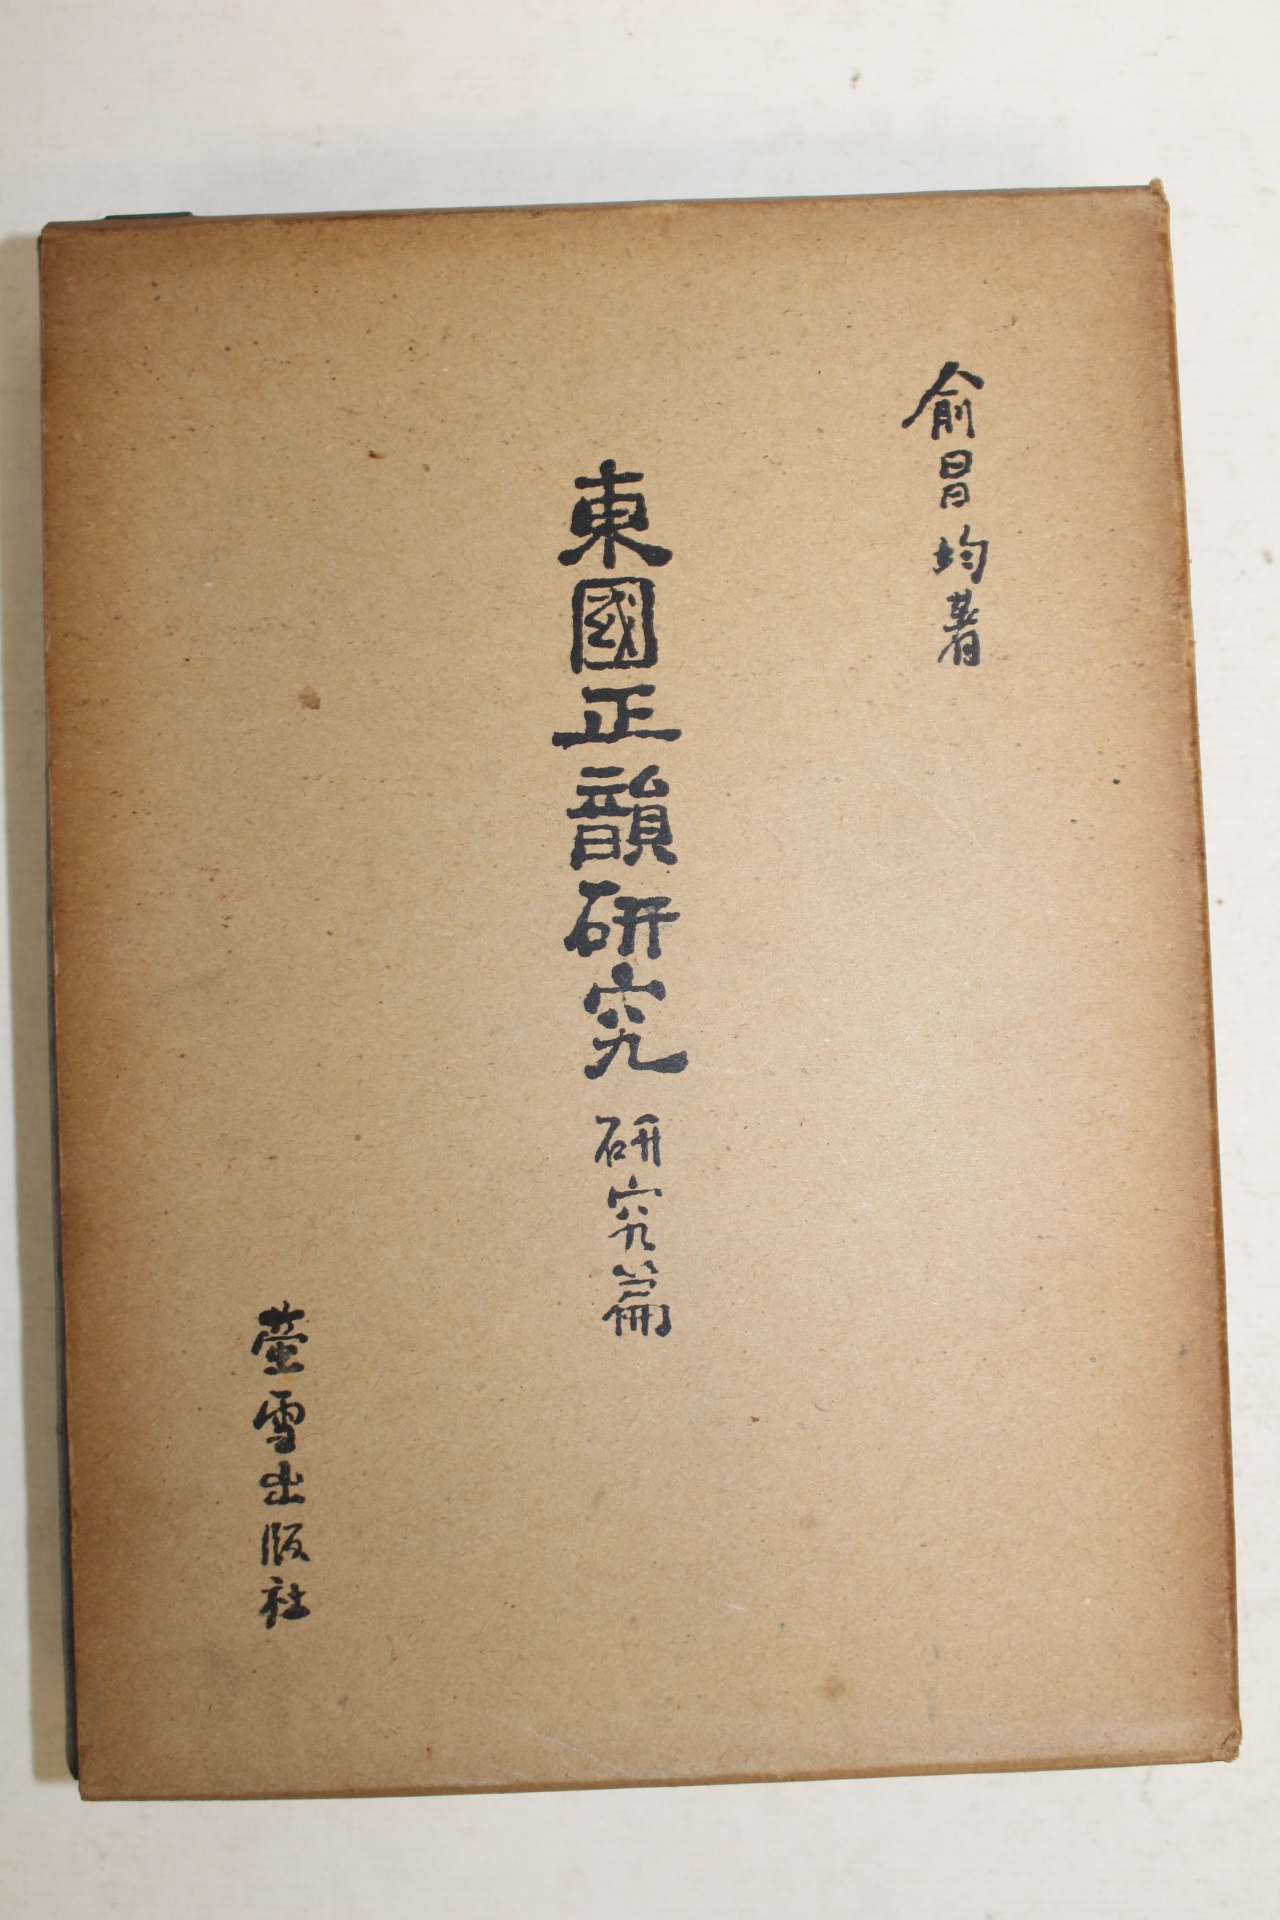 兪昌均著
東國正韻研究 研究篇
螢雪出版社